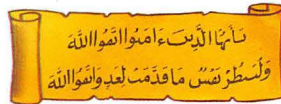 يَٰٓأَيُّهَا ٱلَّذِينَ ءَامَنُوا ٱتَّقُوا ٱللَّهَ
وَلْتَنظُرْ نَفْسٌ مَا قَدَّمَتْ لِغَدٍ وَٱتَّقُوا ٱللَّهَ